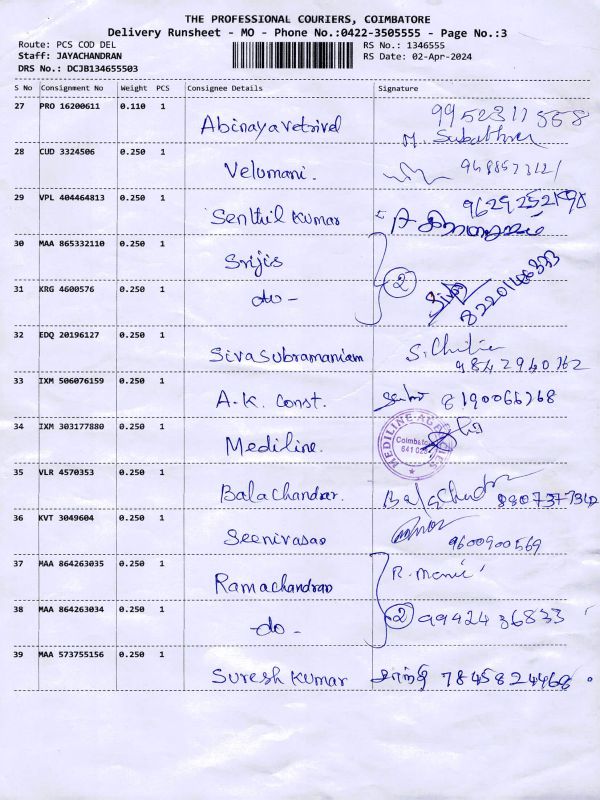 THE PROFESSIONAL COURIERS, COIMBATORE
Delivery Runsheet - MO - Phone No.:0422-3505555 - Page No.:3
Route: PCS COD DEL
Staff: JAYACHANDRAN
DRS No.: DCJB134655503
RS No.: 1346555
RS Date: 02-Apr-2024
S No Consignment No Weight PCS Consignee Details Signature
27 PRO 16200611 0.110 1 Abinaya vetrivel
M. Subathra
28 CUD 3324506 0.250 1 Velumani.
29 VPL 404464813 0.250 1 Senthil kumar 9629252190
30 MAA 865332110 0.250 1 Srijis
31 KRG 4600576 0.250 1 -do- 2 Siva 8220146333
32 EDQ 20196127 0.250 1 Sivasubramaniam S. Chitra
9842940762
33 IXM 506076159 0.250 1 A.K. Const. 8190066268
34 IXM 303177880 0.250 1 Mediline. MEDILINE AGENCIES Coimbatore 641 025
35 VLR 4570353 0.250 1 Balachandran. Balachandran 8807377312
36 KVT 3049604 0.250 1 Seenivasan
9600900569
37 MAA 864263035 0.250 1 Ramachandran R. Mani
38 MAA 864263034 0.250 1 -do- 2 9942436833
39 MAA 573755156 0.250 1 Suresh Kumar சாந்தி 7845824468